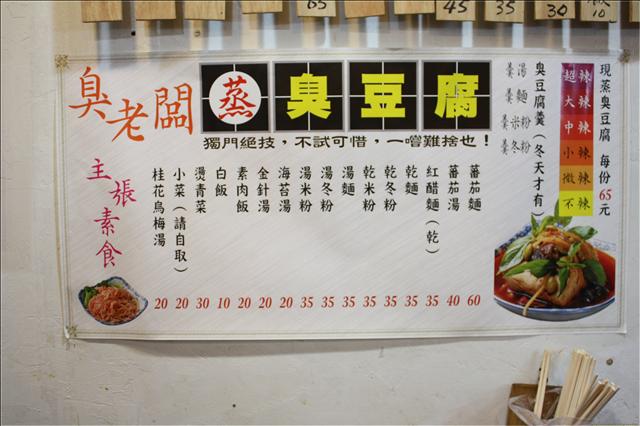 65
45
35
30
10
臭老闆
蒸臭豆腐
獨門絕技，不試可惜，一嚐難捨也！
主張素食
現蒸臭豆腐 每份65元
超辣
大辣
中辣
小辣
微辣
不辣
臭豆腐羹(冬天才有)
羹湯
羹麵
羹米粉
羹冬粉
蕃茄麵 60
蕃茄湯 40
紅醋麵(乾) 35
乾麵 35
乾冬粉 35
乾米粉 35
湯麵 35
湯冬粉 35
湯米粉 35
海苔湯 20
金針湯 20
素肉飯 20
白飯 10
燙青菜 30
小菜(請自取) 20
桂花烏梅湯 20